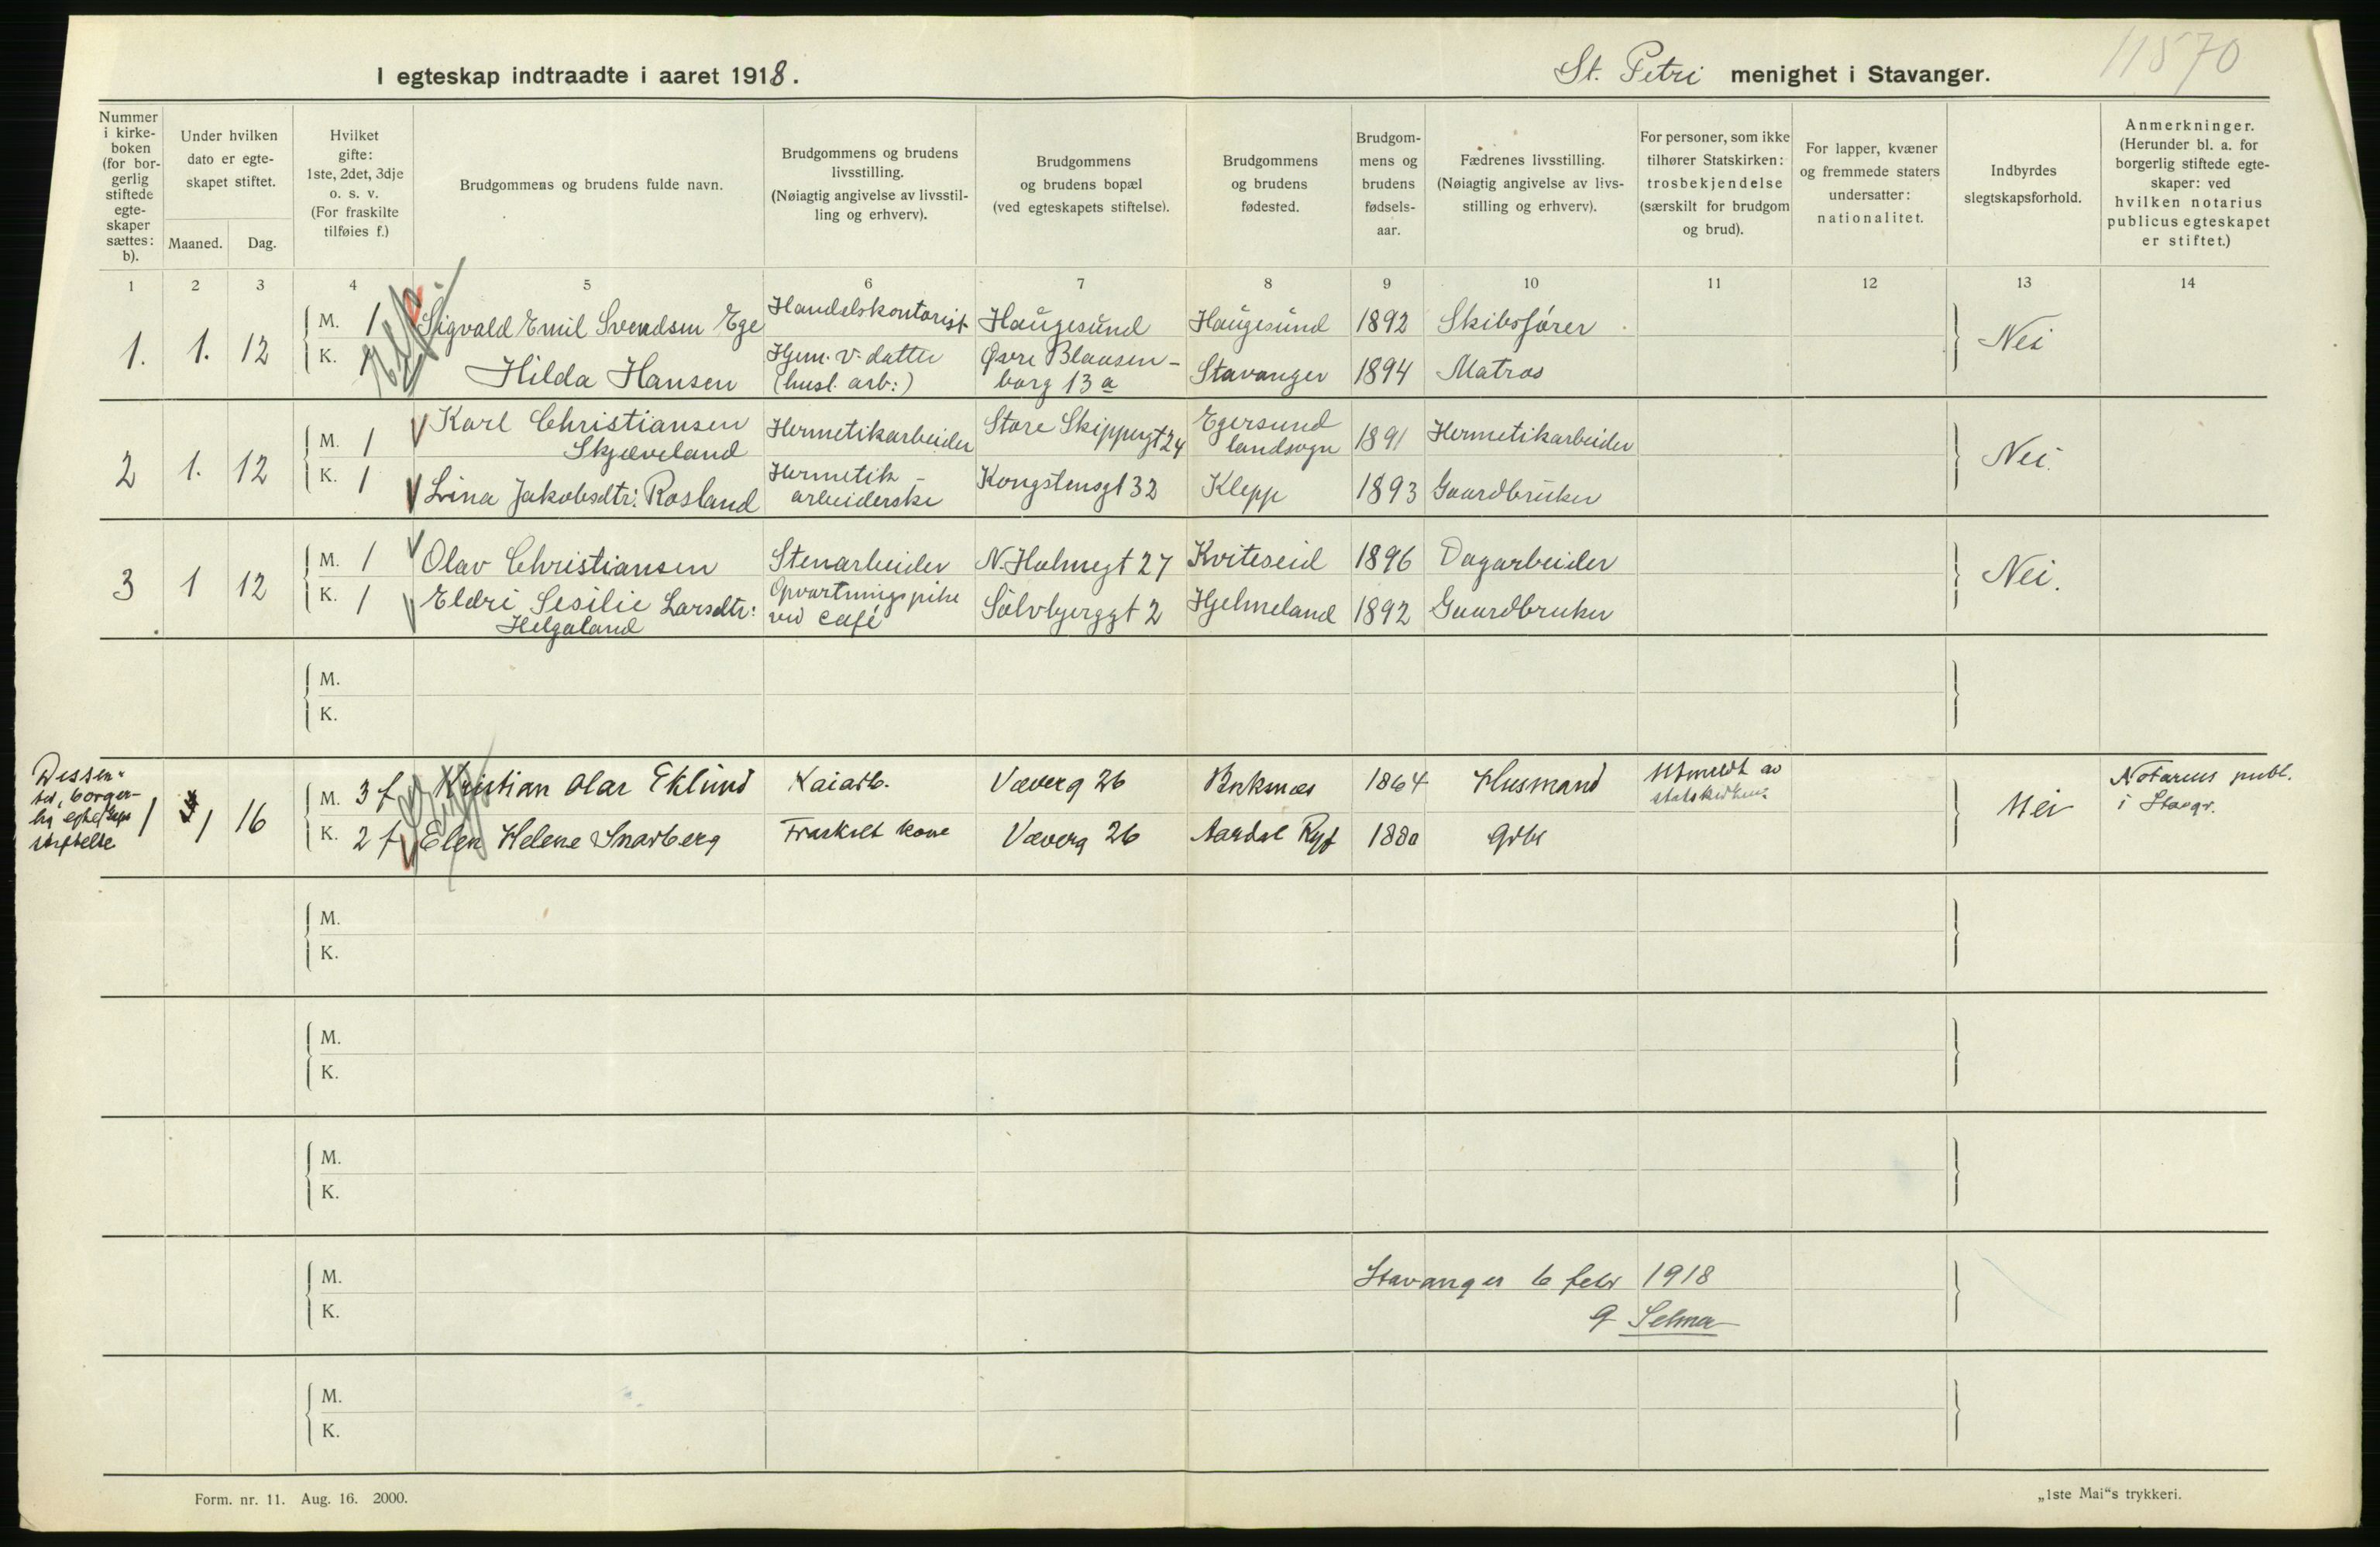 11570
I egteskap indtraadte i aaret 1918.
St. Petri menighet i Stavanger.
Nummer
i kirke-
boken
(for bor-
gerlig
stiftede
egte-
skaper
sættes:
b).
Under hvilken
dato er egte-
skapet stiftet.
Maaned. Dag.
Hvilket
gifte:
1ste, 2det, 3dje
o. s. v.
(For fraskilte
tilføies f.)
Brudgommens og brudens fulde navn.
Brudgommens og brudens
livsstilling.
(Nøiagtig angivelse av livsstil-
ling og erhverv).
Brudgommens
og brudens bopæl
(ved egteskapets stiftelse).
Brudgommens
og brudens
fødested.
Brudgom-
mens og
brudens
fødsels-
aar.
Fædrenes livsstilling.
(Nøiagtig angivelse av livs-
stilling og erhverv).
For personer, som ikke
tilhører Statskirken:
trosbekjendelse
(særskilt for brudgom
og brud).
For lapper, kvæner
og fremmede staters
undersatter:
nationalitet.
Indbyrdes
slegtskapsforhold.
Anmerkninger.
(Herunder bl. a. for
borgerlig stiftede egte-
skaper: ved
hvilken notarius
publicus egteskapet
er stiftet.)
1 2 3 4 5 6 7 8 9 10 11 12 13 14
1. 1. 12
M. 1 Sigvald Emil Svendsen Ege Handelskontorist Haugesund Haugesund 1892 Skibsfører
K. 1 Hilda Hansen Hjem. v. datter (husl. arb:) Øvre Blaasen-
borg 13 a Stavanger 1894 Matros
Nei
2 1. 12
M. 1 Karl Christiansen
Skjæveland Hermetikarbeider Store Skippergt 24 Egersund
landsogn 1891 Hermetikarbeider
K. 1 Lina Jakobsdtr: Rosland Hermetik-
arbeiderske Kongstensgt 32 Klepp 1893 Gaardbruker
Nei.
3 1 12
M. 1 Olav Christiansen Stenarbeider N. Holmegt 27 Kviteseid 1896 Dagarbeider
K. 1 Eldri Sesilie Larsdtr:
Helgaland Opvartningspike
ved café Sølvbjerggt 2 Hjelmeland 1892 Gaardbruker
Nei.
M.
K.
Dissen-
ter, borger-
lig egteskaps
stiftelse
1 1 16
M. 3 f Kristian Olar Eklund Kaiarb. Væverg 26 1864 Husmand Utmeldt av
statskirken
K. 2 f Elen Helene Snarberg Fraskilt kone Væverg 26 Aardal Ryf 1880 Grbr
Nei
Notarius publ.
i Stavgr.
M.
K.
M.
K.
M.
K.
M.
K.
Stavanger 6 febr 1918
M.
K.
Form. nr. 11. Aug. 16. 2000.
„1ste Mai“s trykkeri.